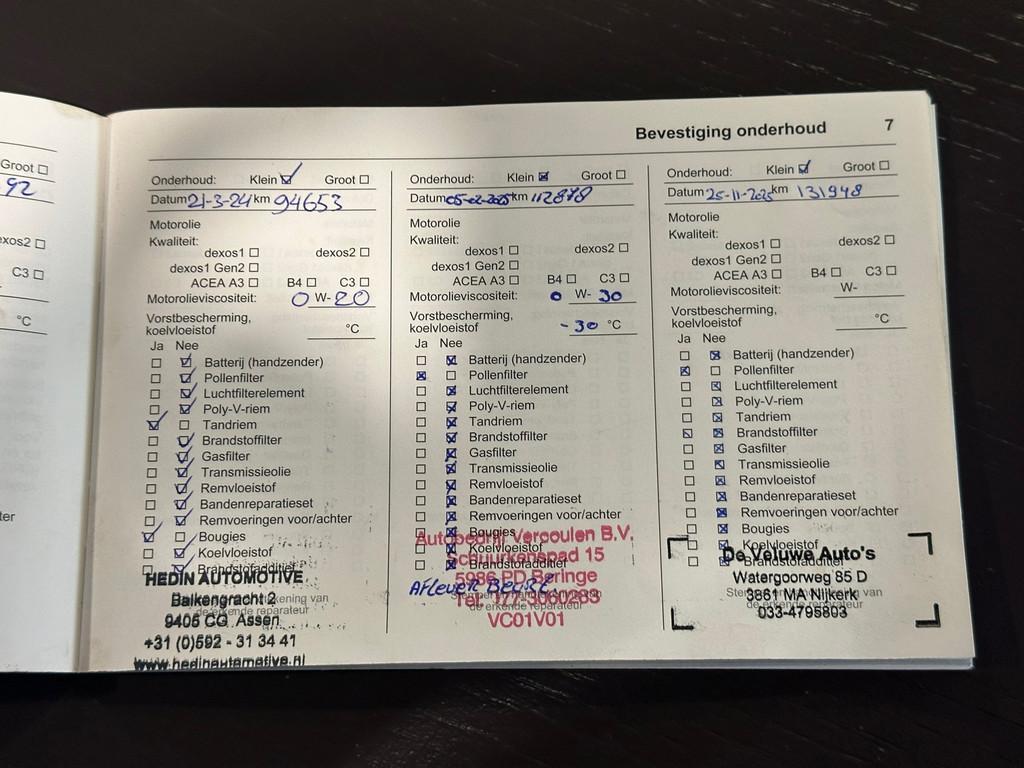 Groot
92
exos2
C3
°C
ter
Bevestiging onderhoud 7
Onderhoud: Klein Groot
Datum 21-3-24 km 94653
Motorolie
Kwaliteit:
dexos1 dexos2
dexos1 Gen2
ACEA A3 B4 C3
Motorolieviscositeit: 0 W- 20
Vorstbescherming,
koelvloeistof °C
Ja Nee
Batterij (handzender)
Pollenfilter
Luchtfilterelement
Poly-V-riem
Tandriem
Brandstoffilter
Gasfilter
Transmissieolie
Remvloeistof
Bandenreparatieset
Remvoeringen voor/achter
Bougies
Koelvloeistof
Brandstofadditief
HEDIN AUTOMOTIVE
Balkengracht 2
9405 CG Assen
+31 (0)592 - 31 34 41
www.hedinautomotive.nl
Onderhoud: Klein Groot
Datum 05-02-2025 km 112878
Motorolie
Kwaliteit:
dexos1 dexos2
dexos1 Gen2
ACEA A3 B4 C3
Motorolieviscositeit: 0 W- 30
Vorstbescherming,
koelvloeistof -30 °C
Ja Nee
Batterij (handzender)
Pollenfilter
Luchtfilterelement
Poly-V-riem
Tandriem
Brandstoffilter
Gasfilter
Transmissieolie
Remvloeistof
Bandenreparatieset
Remvoeringen voor/achter
Bougies
Koelvloeistof
Brandstofadditief
Autobedrijf Vercoulen B.V.
Schuurkenspad 15
5986 PD Beringe
Aflever Beurt
Tel. 077-3060283
de erkende reparateur
VC01V01
Onderhoud: Klein Groot
Datum 25-11-2025 km 131948
Motorolie
Kwaliteit:
dexos1 dexos2
dexos1 Gen2
ACEA A3 B4 C3
Motorolieviscositeit: W-
Vorstbescherming,
koelvloeistof °C
Ja Nee
Batterij (handzender)
Pollenfilter
Luchtfilterelement
Poly-V-riem
Tandriem
Brandstoffilter
Gasfilter
Transmissieolie
Remvloeistof
Bandenreparatieset
Remvoeringen voor/achter
Bougies
Koelvloeistof
Brandstofadditief
De Veluwe Auto's
Watergoorweg 85 D
3861 MA Nijkerk
de erkende reparateur
033-4795803